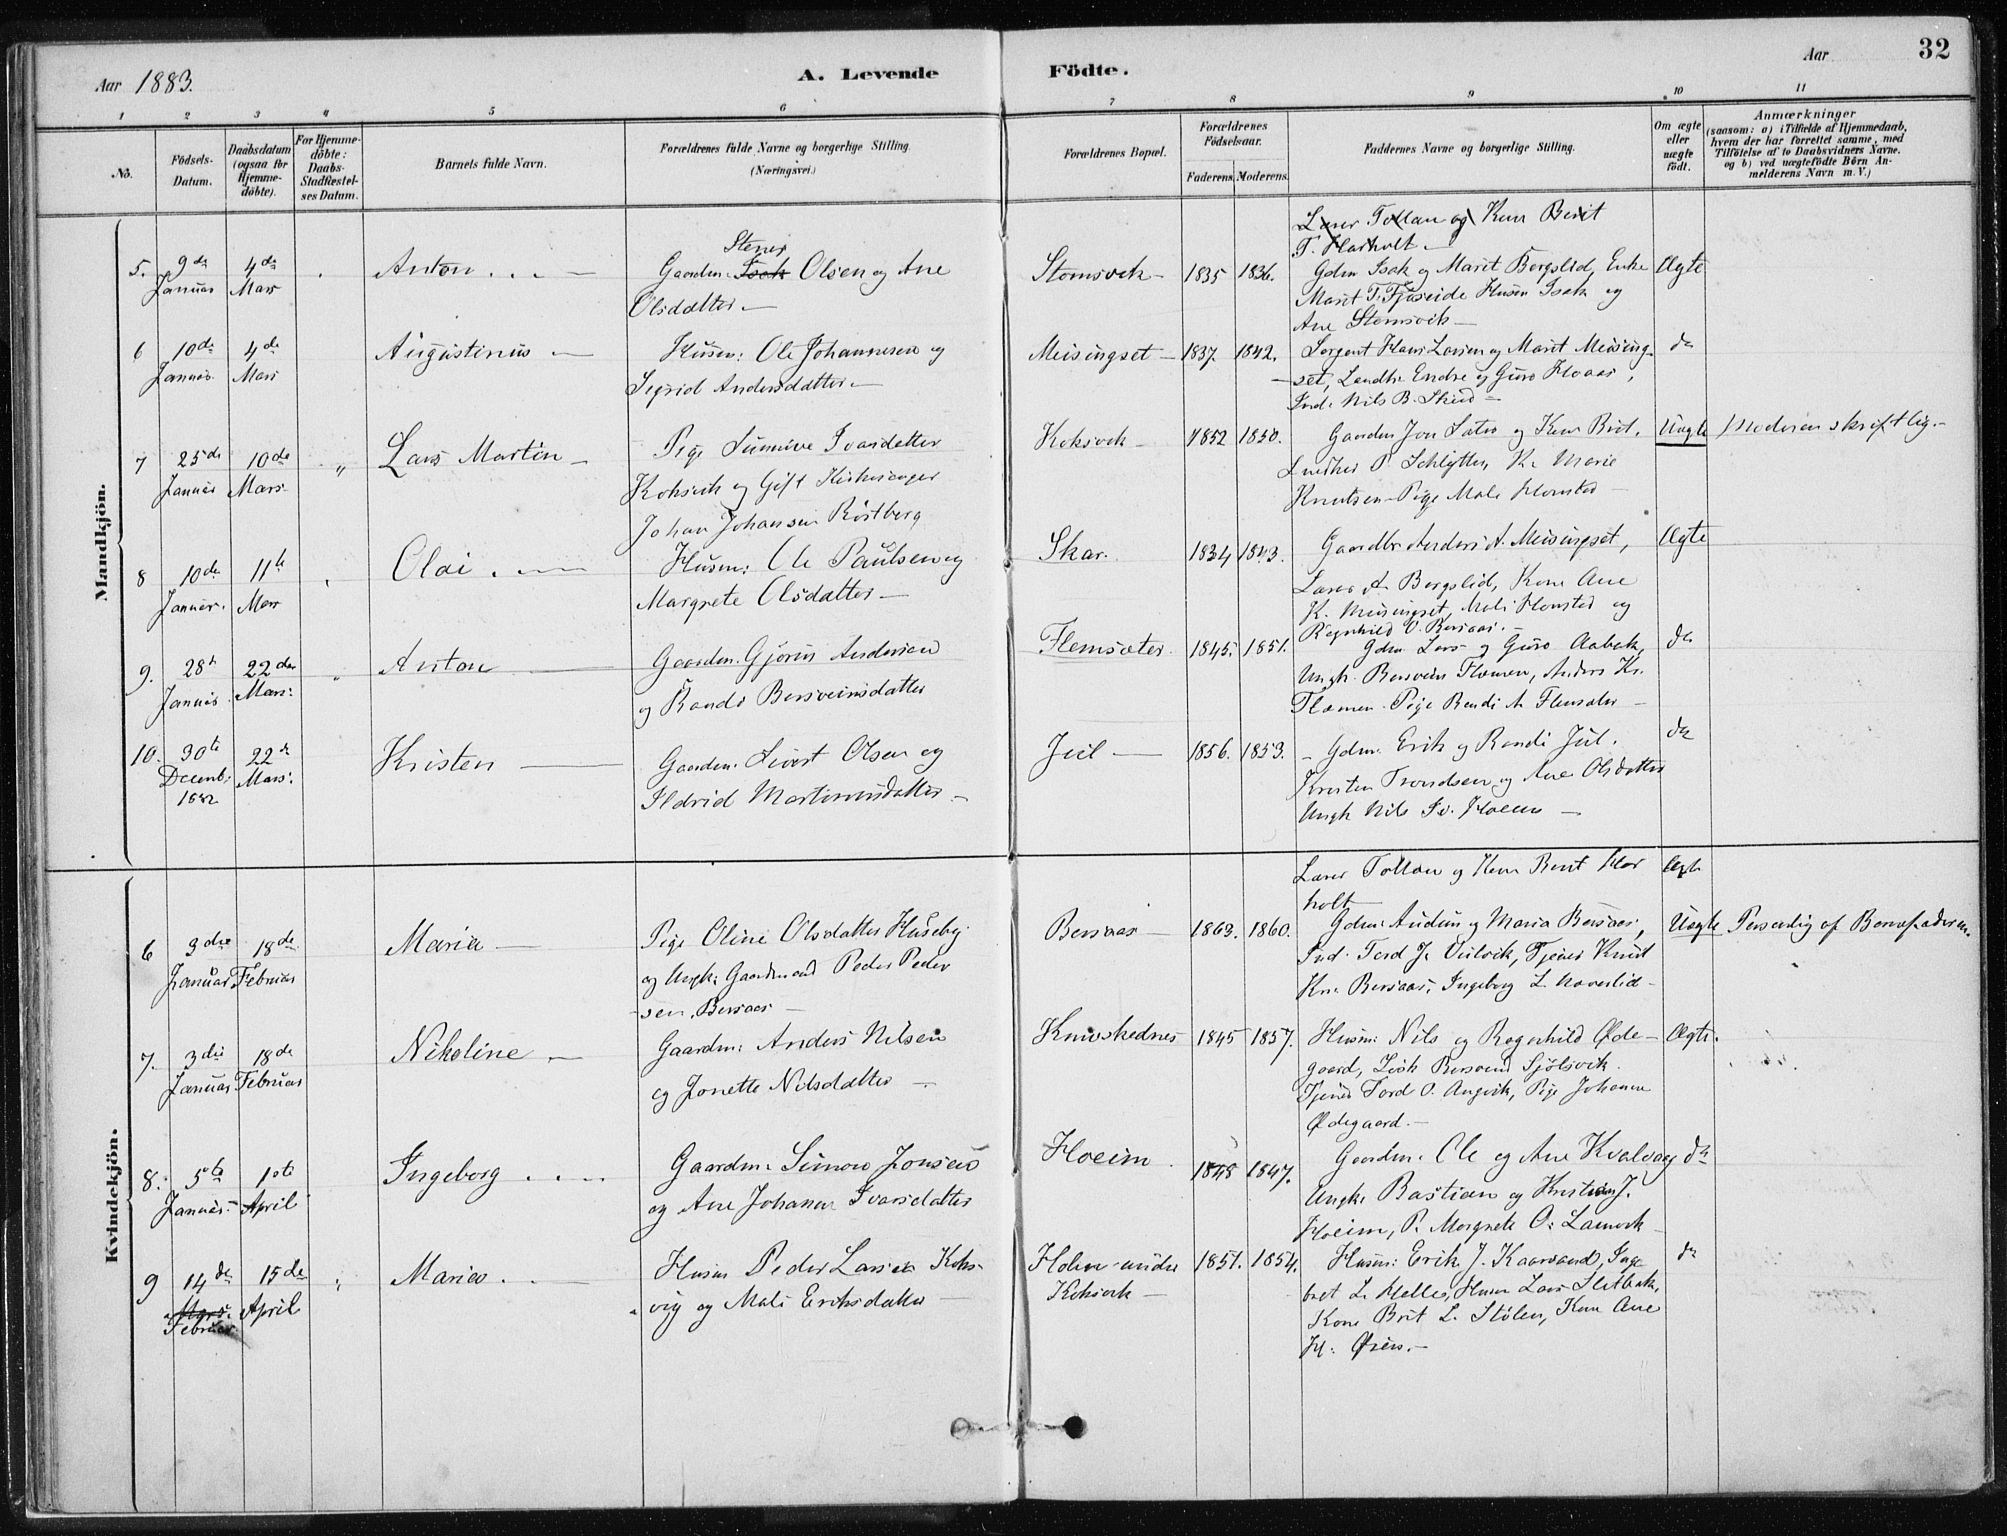 Aar 1883.
A. Levende
Födte.
Aar
32
1 2 3 4 5 6 7 8 9 10 11
No.
Födsels-
Datum.
Daabsdatum
(ogsaa for
Hjemme-
döbte).
For Hjemme-
döbte:
Daabs-
Stadfæstel-
ses Datum.
Barnets fulde Navn.
Forældrenes fulde Navne og borgerlige Stilling.
(Næringsvei.)
Forældrenes Bopæl.
Forældrenes
Födselsaar.
Faderens. Moderens.
Faddernes Navne og borgerlige Stilling.
Om ægte
eller
uægte
födt.
Anmærkninger
(saasom: a) i Tilfælde af Hjemmedaab,
hvem der har forrettet samme, med
Tilföielse af to Daabsvidners Navne.
og b) ved uægtefödte Börn An-
melderens Navn m. V.)
Mandkjön.
5. 9de Januar
4de Mars
Anton
Stener
Gaardm. Isak Olsen og Ane
Olsdatter
Stomsvik
1835 1836.
Lærer Tollan og Kone Berit
T. Harholt
Gdm Isak og Marit Bergslid, Enke
Marit T. Fjøseide Husm Isak og
Ane Stomsvik
Ægte
6 10de Januar
4de Mars
Augustinus
Husm: Ole Johannesen og
Sigrid Andersdatter
Meisingset
1837. 1842.
Sergent Hans Larsen og Marit Meising-
set, Landhr Endre og Guro Hoaas,
Ind: Nils B. Skeid
do
7 25de Januar
10de Mars
Lars Martin
Pige Sunnive Ivarsdatter
Koksvik og Gift Kirkesanger
Johan Johansen Röstberg
Koksvik
1852 1850.
Gaardm Jon Sæter og Kone Brit,
Snedker P. Schlytter, K. Marie
Knutsen Pige Mali Honstad
Uægte
Moderen skriftlig.
8 10de Januar.
11te Mars
Olai
Husm: Ole Paulsen og
Margrete Olsdatter
Skar.
1834 1843.
Gaardbr Anders A. Meisingset,
Lærer A Bergslid, Kone Ane
K. Meisingset, Mali Honstad og
Ragnhild O. Bersaas.
Ægte
9. 28de Januar
22den Mars.
Anton
Gaardm. Gjörus Andersen
og Randi Bersveinsdatter
Flemsæter.
1845. 1851.
Gdm Lars og Guro Aabak,
Ungk. Bersvein Flemen, Anders Kr.
Flæmen Pige Randi A Flemsæter
do
10. 30te Decemb. 1882
22de Mars.
Kristen
Gaardm. Sivert Olsen og
Ildrid Mortensdatter
Juul
1856. 1853.
Gdm. Erik og Randi Juul.
Kristen Trondsen og Ane Olsdatter
Ungk Nils Iv. Hoem
do
Kvindekjön.
Lærer Tollan og Kone Berit Har
holt
Ægte
6 3die Januar
18de Februar
Maria
Pige Oline Olsdatter Huseby
og Ungk. Gaardmand Peder Peder
sen Bersaas
Bersaas
1863. 1860.
Gdm. Audun og Maria Bersaas,
Ind. Tord J. Vulvik, Tjener Knud
Kn. Bersaas, Ingeborg L. Naverlid
Uægte
Personlig af Barnefaderen.
7. 3die Januar
18de Februar
Nikoline
Gaardm: Anders Nilsen
og Jonette Nilsdatter
Knivskednes
1845 1857.
Husm: Nils og Ragnhild Øde-
gaard, Bersvend Sjölsvik.
Tjener Tord O. Angvik, Pige Johanna
Ødegaard.
Ægte.
8. 5te Januar
1ste April
Ingeborg
Gaardm. Simon Jonsen
og Ane Johanna Ivarsdatter
Hoeim
1848 1847.
Gaardm. Ole og Ane Kvalvaag
Ungk. Bastian og Kristian J.
Hoeim, P. Margrete O. Lamvik
do
9 14de Mars Februar
15de April
Maria
Husm Peder Larsen Koks-
vig og Mali Eriksdatter
Holm under
Koksvik
1851. 1854.
Husm: Erik J. Kaarvand, Inge
bret L. Melles, Husm Lars Sletbak,
Kone Brit L. Stölen, Kone Ane
H. Øien.
do